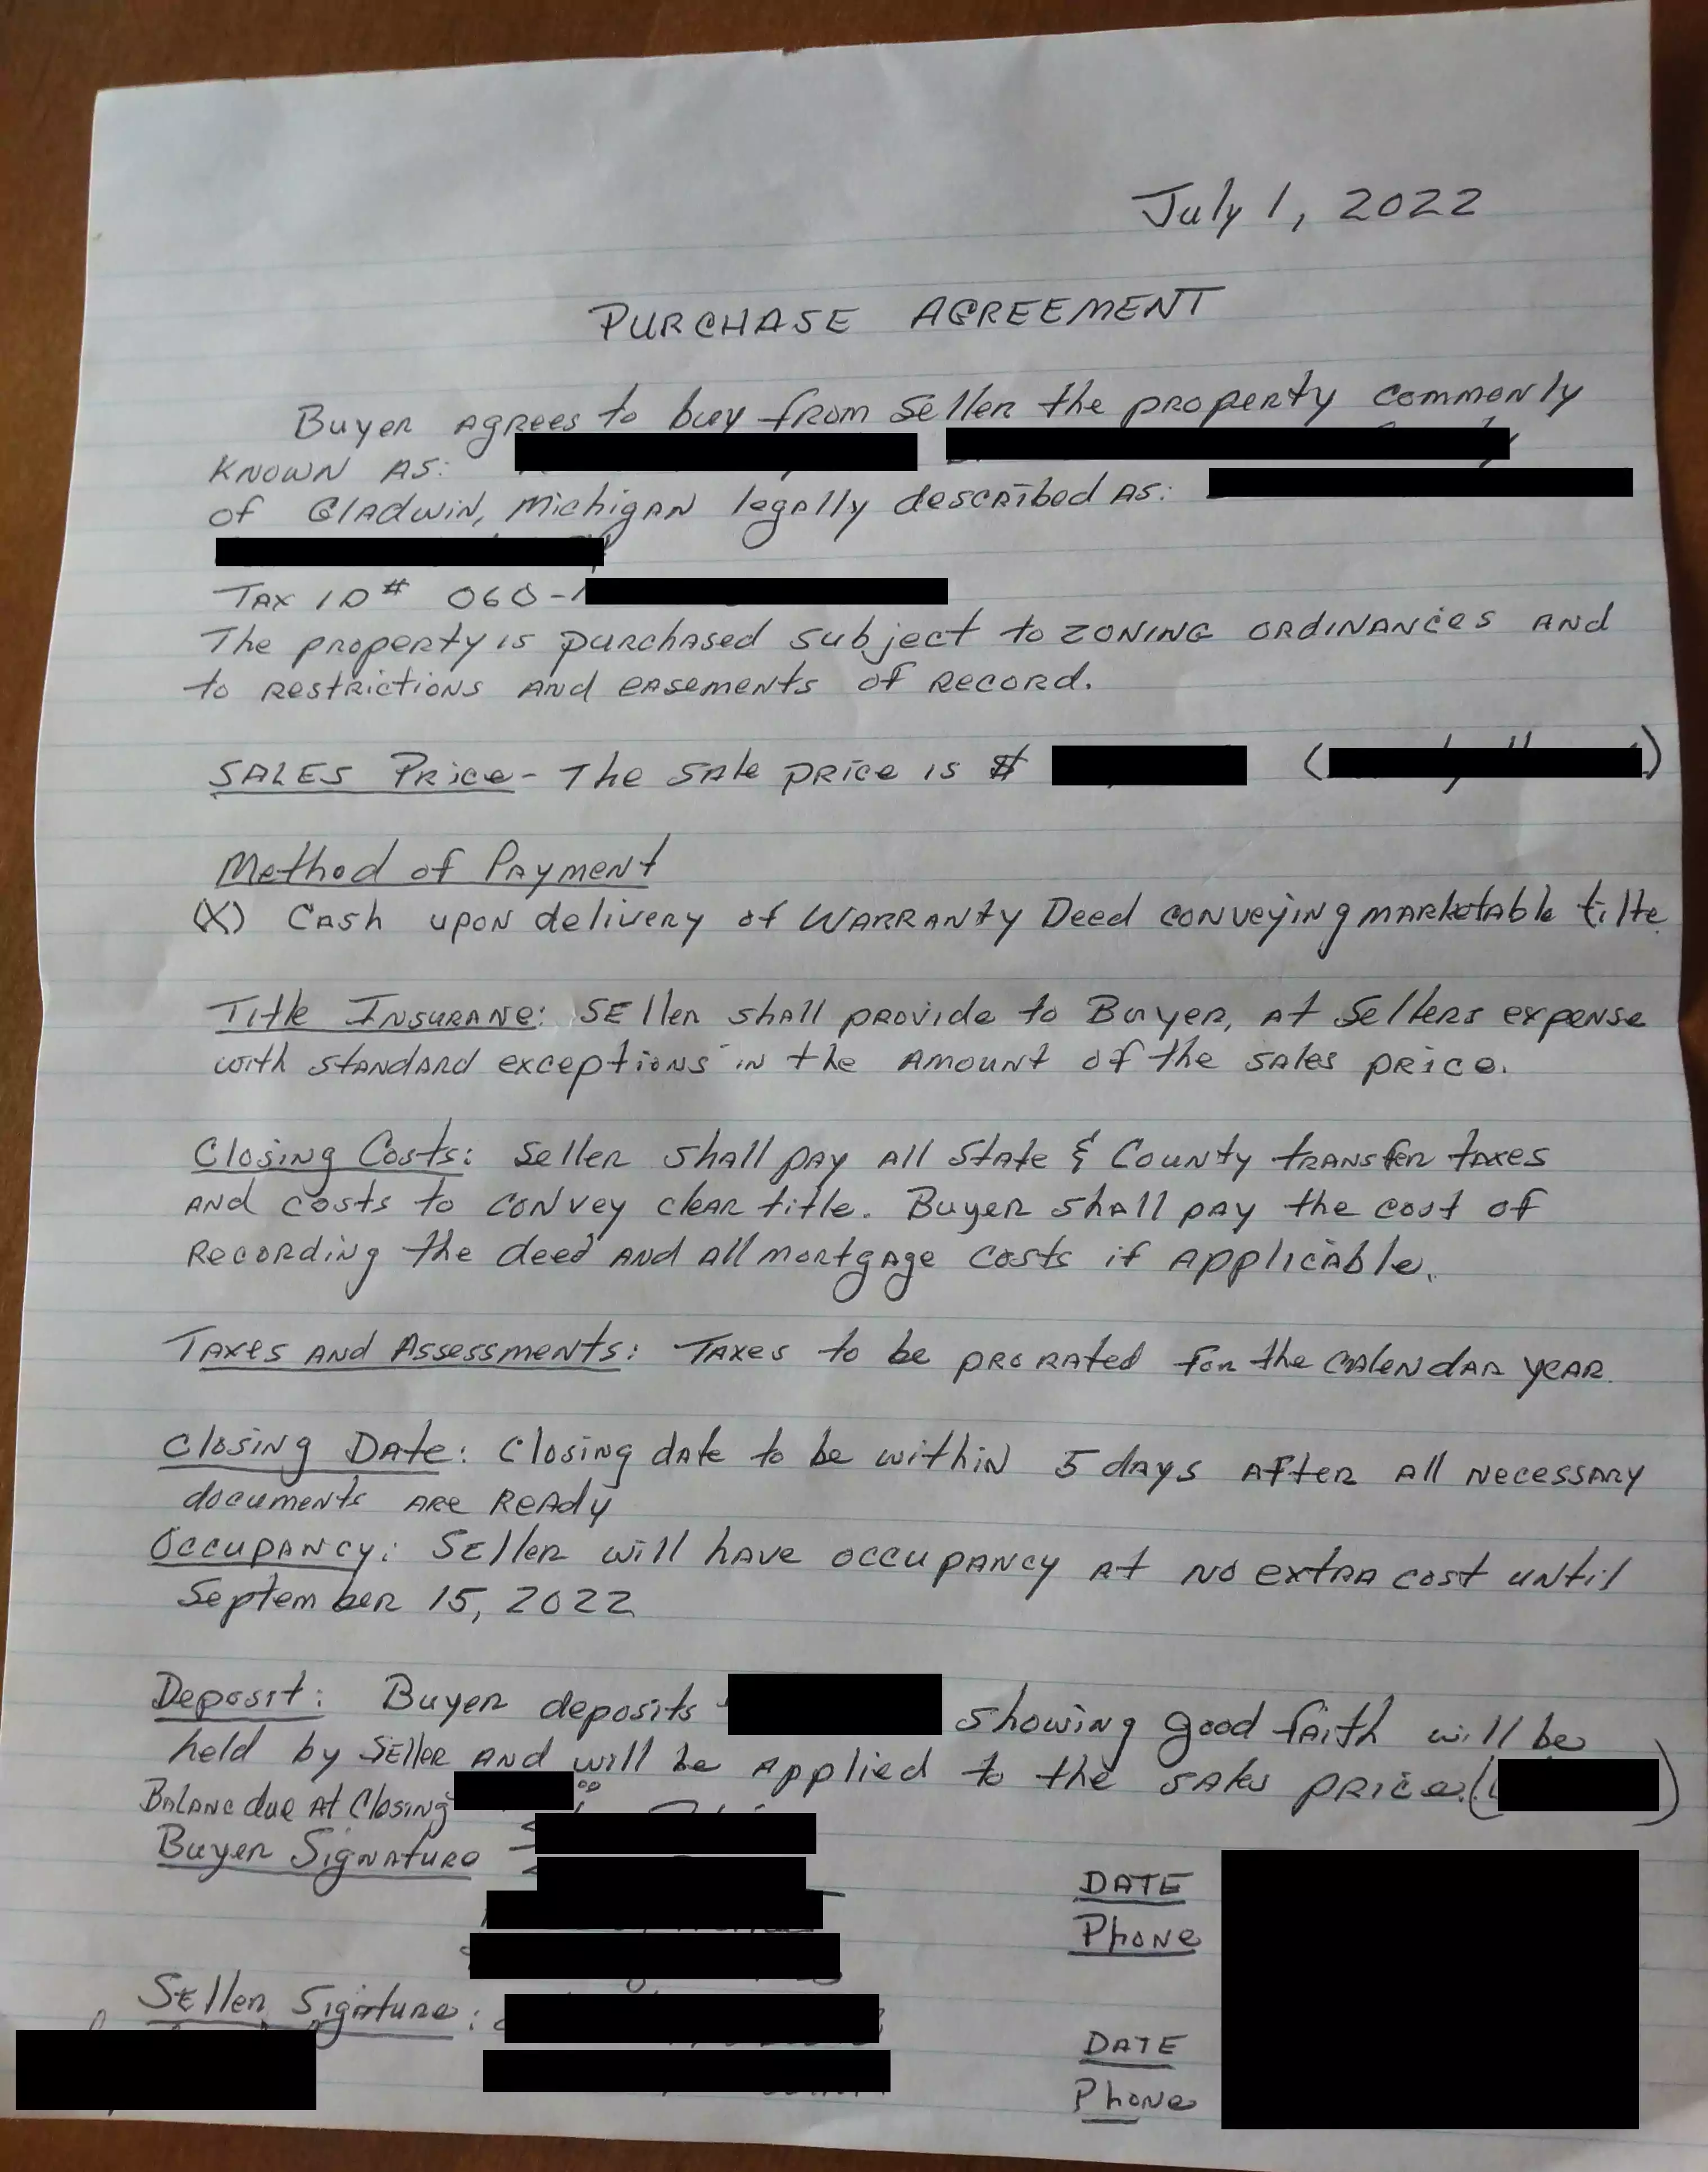 July 1, 2022
PURCHASE AGREEMENT
Buyer agrees to buy from Seller the property commonly
known as:
of Gladwin, Michigan legally described as:
Tax ID# 060-
The property is purchased subject to zoning ordinances and
to restrictions and easements of record.
Sales Price - The sale price is $ ( )
Method of Payment
(X) Cash upon delivery of Warranty Deed conveying marketable tilte
Title Insurane: Seller shall provide to Buyer, at Sellers expense
with standard exceptions in the amount of the sales price.
Closing Costs: Seller shall pay all State & County transfer taxes
and costs to convey clear title. Buyer shall pay the cost of
recording the deed and all mortgage costs if applicable.
Taxes and Assessments: Taxes to be prorated for the calendar year.
Closing Date: Closing date to be within 5 days after all necessary
documents are ready
Occupancy: Seller will have occupancy at no extra cost until
September 15, 2022
Deposit: Buyer deposits showing good faith will be
held by Seller and will be applied to the sales price. ( )
Balanc due at Closing 00
Buyer Signature
DATE
Phone
Seller Signture:
DATE
Phone